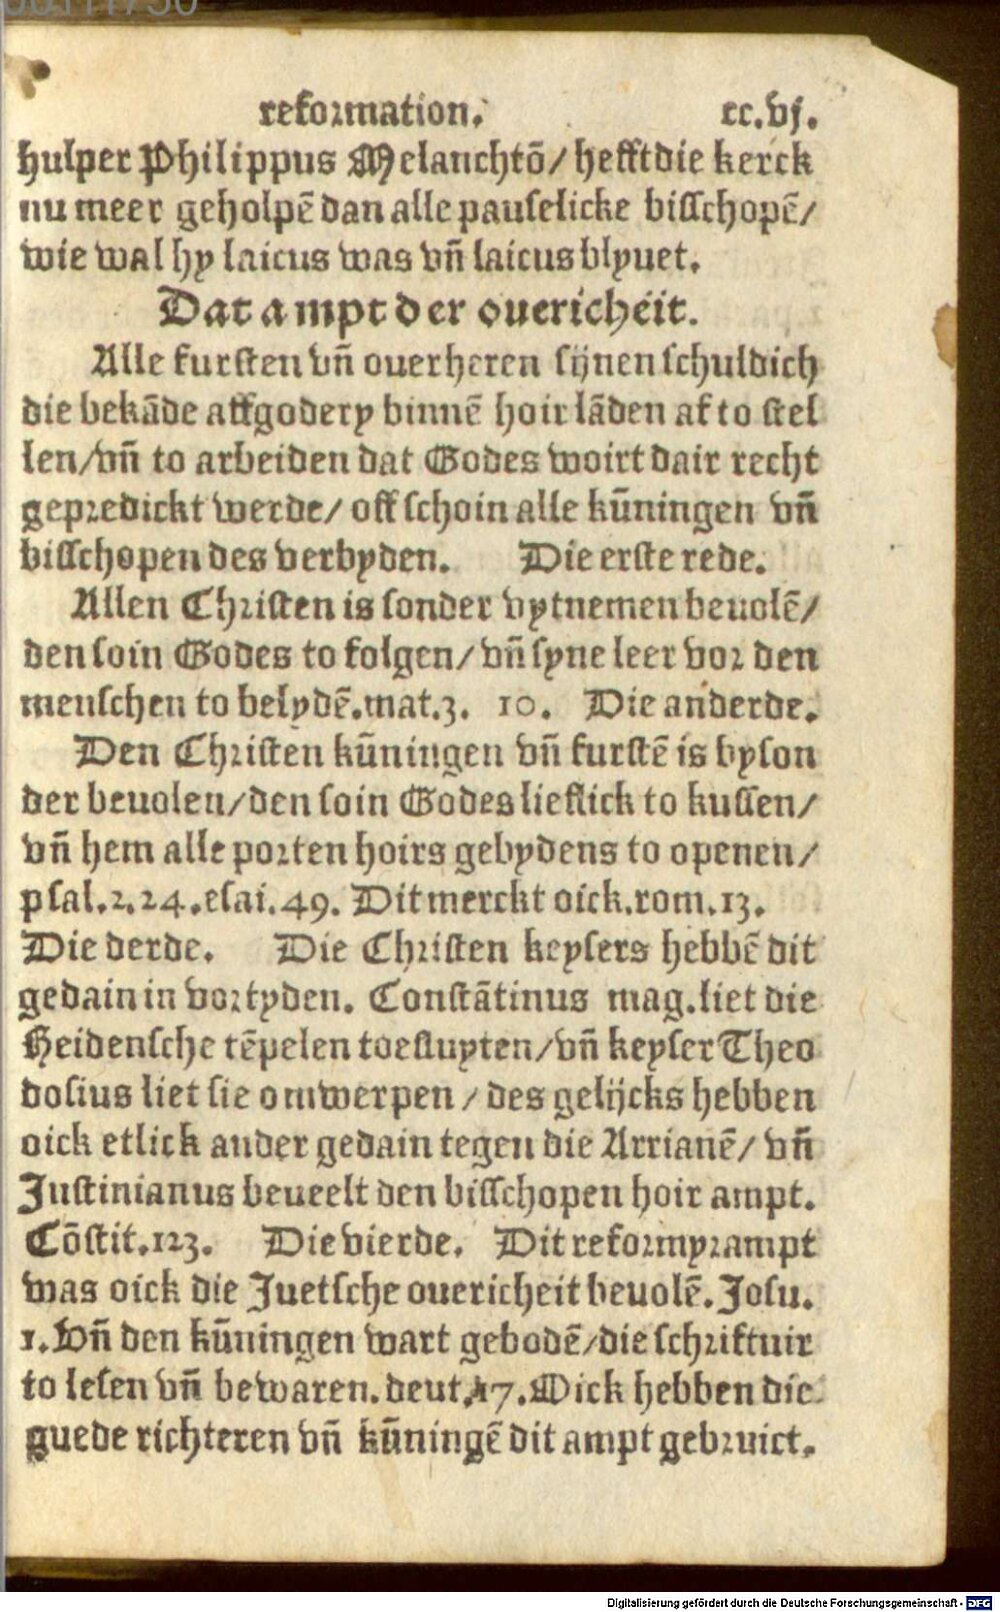 reformation. cc.vj.
hulper Philippus Melanchtõ/ hefft die kerck
nu meer geholpẽ dan alle pauselicke bisschopẽ/
wie wal hy laicus was vñ laicus blyuet.
Dat ampt der ouericheit.
Alle fursten vñ ouerheren sijnen schuldich
die bekãde affgodery binnẽ hoir lãden af to stel
len/vñ to arbeiden dat Godes woirt dair recht
gepredickt werde/ off schoin alle kũningen vñ
bisschopen des verbyden. Die erste rede.
Allen Christen is sonder vytnemen beuolẽ/
den soin Godes to folgen/ vñ syne leer vor den
menschen to belydẽ.mat.3. 10. Die anderde.
Den Christen kũningen vñ furstẽ is byson
der beuolen/den soin Godes lieflick to kussen/
vñ hem alle porten hoirs gebydens to openen/
psal.2.24.esai.49. Dit merckt oick.rom.13.
Die derde. Die Christen keysers hebbẽ dit
gedain in vortyden. Constãtinus mag.liet die
Heidensche tẽpelen toesluyten/vñ keyser Theo
dosius liet sie omwerpen / des gelijcks hebben
oick etlick ander gedain tegen die Arrianẽ/ vñ
Justinianus beueelt den bisschopen hoir ampt.
Cõstit.123. Die vierde. Dit reformyrampt
was oick die Juetsche ouericheit beuolẽ. Josu.
1. Vñ den kũningen wart gebodẽ/die schriftuir
to lesen vñ bewaren. deut.17. Oick hebben die
guede richteren vñ kũningẽ dit ampt gebruict.
Digitalisierung gefördert durch die Deutsche Forschungsgemeinschaft - DFG